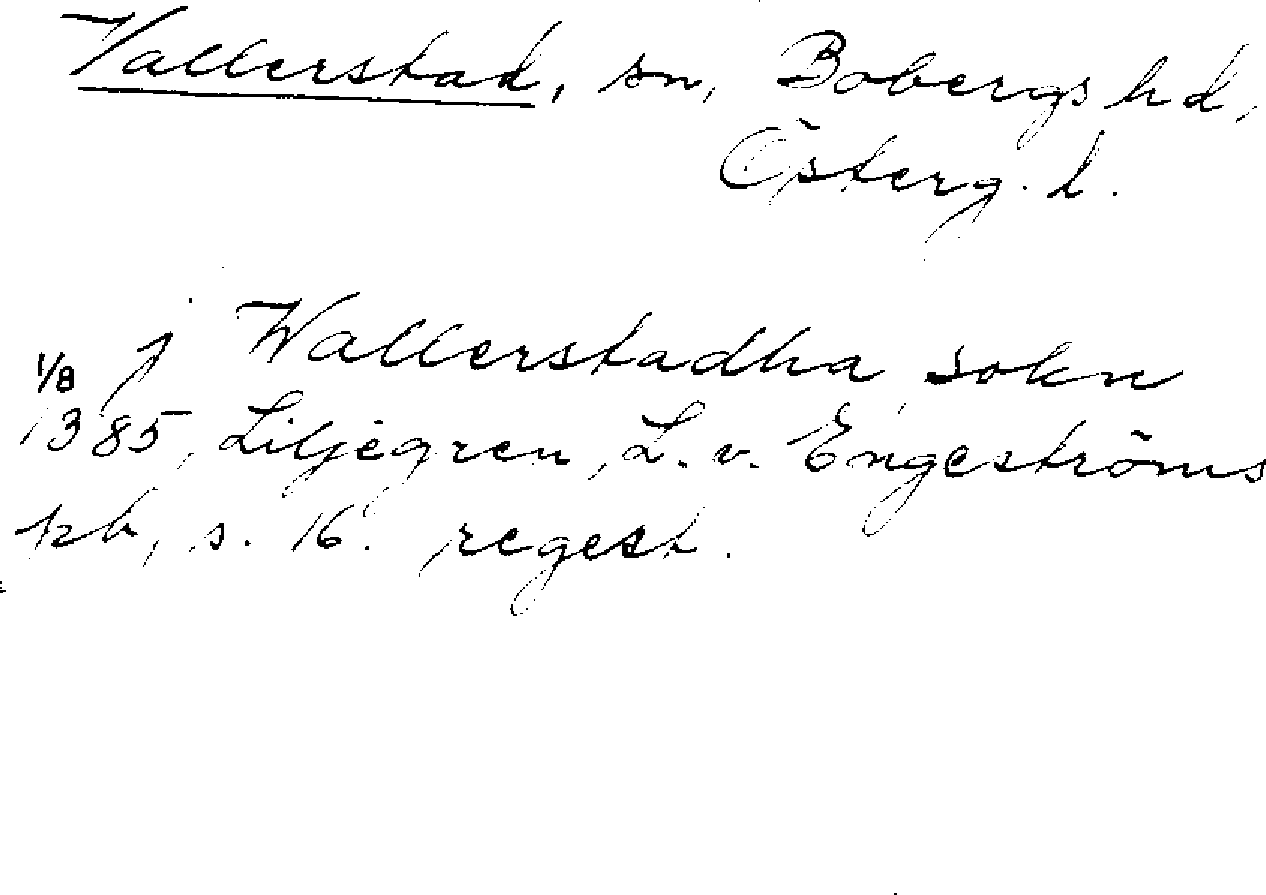 Vallerstad, sn, Bobergs hd,
Österg. l.
j Wallerstadha sokn
1/8
1385, Liljegren, L. v. Engeströms
pb, s. 16. regest.